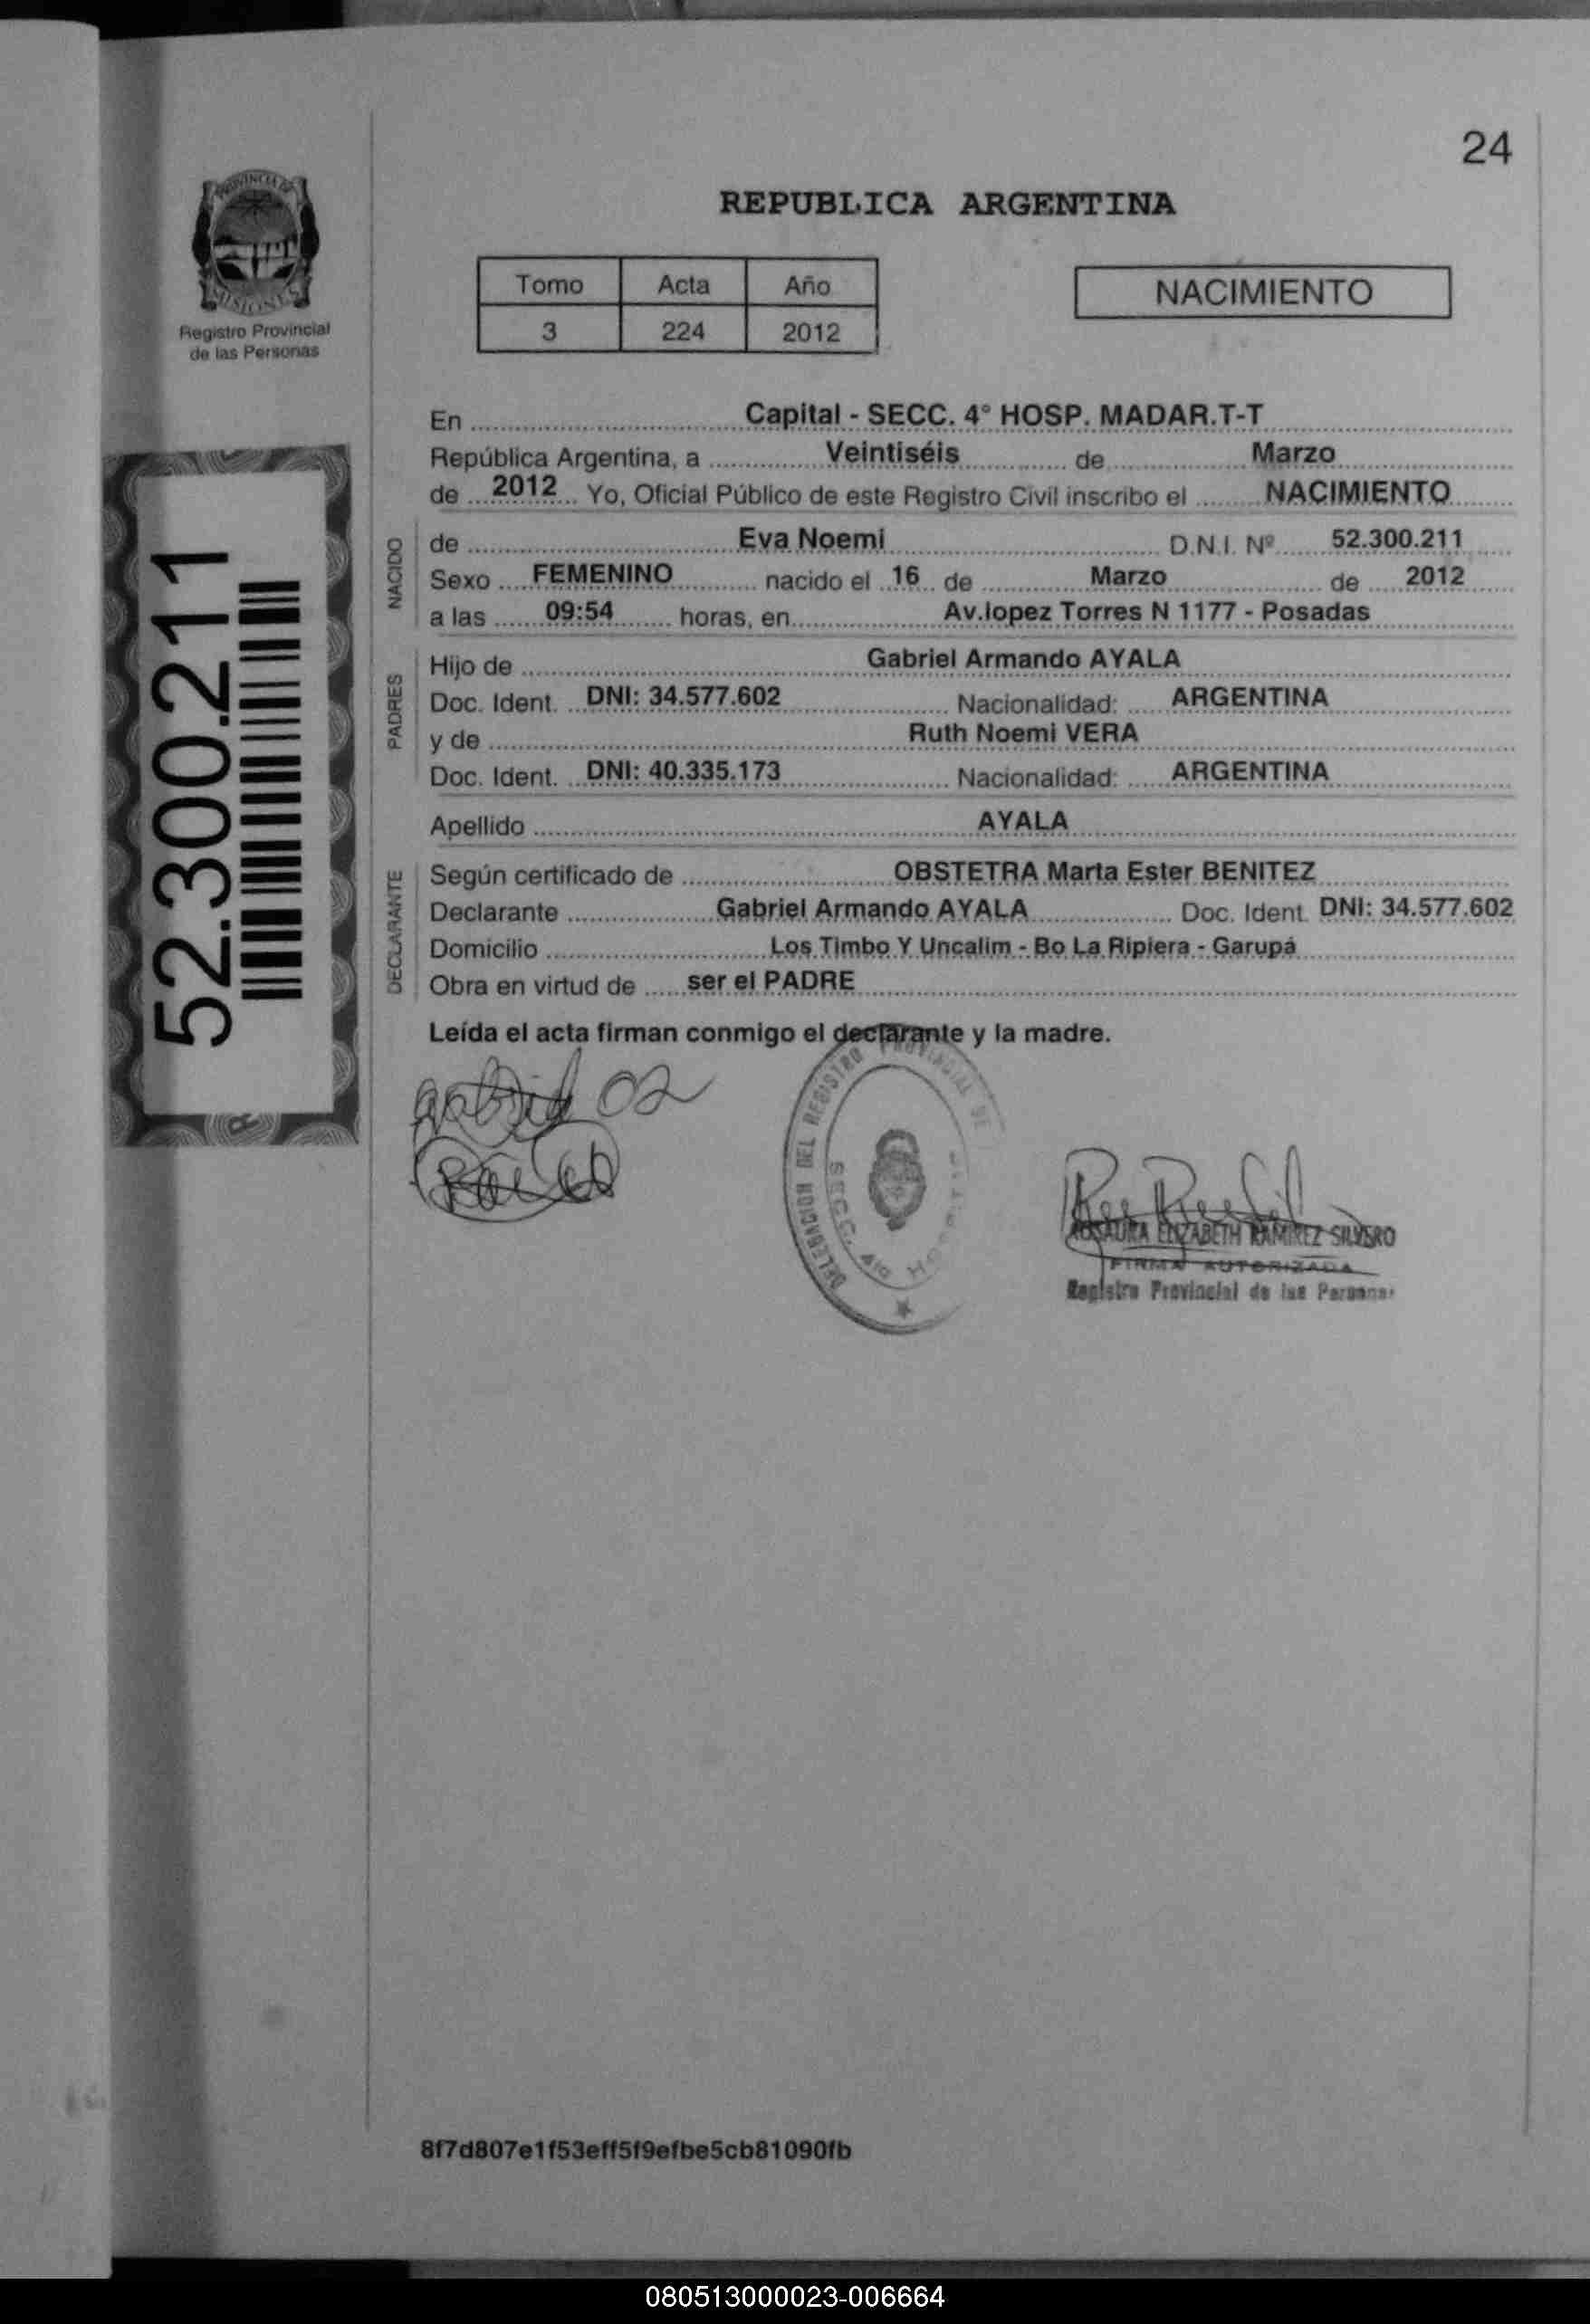 24
PROVINCIA DE
MISIONES
Registro Provincial
de las Personas
REPUBLICA ARGENTINA
Tomo Acta Año
3 224 2012
NACIMIENTO
52.300.211
En Capital - SECC. 4° HOSP. MADAR.T-T
República Argentina, a Veintiséis de Marzo
de 2012 Yo, Oficial Público de este Registro Civil inscribo el NACIMIENTO
NACIDO
de Eva Noemi D.N.I. Nº 52.300.211
Sexo FEMENINO nacido el 16 de Marzo de 2012
a las 09:54 horas, en Av.lopez Torres N 1177 - Posadas
PADRES
Hijo de Gabriel Armando AYALA
Doc. Ident. DNI: 34.577.602 Nacionalidad: ARGENTINA
y de Ruth Noemi VERA
Doc. Ident. DNI: 40.335.173 Nacionalidad: ARGENTINA
Apellido AYALA
DECLARANTE
Según certificado de OBSTETRA Marta Ester BENITEZ
Declarante Gabriel Armando AYALA Doc. Ident. DNI: 34.577.602
Domicilio Los Timbo Y Uncalim - Bo La Ripiera - Garupá
Obra en virtud de ser el PADRE
Leída el acta firman conmigo el declarante y la madre.
DELEGACION DEL REGISTRO PROVINCIAL DE
SECC. 4ta
ROSAURA ELIZABETH RAMIREZ SILVERO
FIRMA AUTORIZADA
Registro Provincial de las Personas
8f7d807e1f53eff5f9efbe5cb81090fb
080513000023-006664